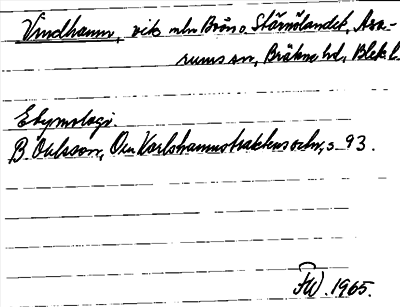 Vindhamn, vik mln Brön o. Stärnölandet, Asa-
rums sn, Bräkne hd, Blek. l.
Etymologi.
B. Ohlsson, Om Karlshamnstraktens och, s. 93.
1965.